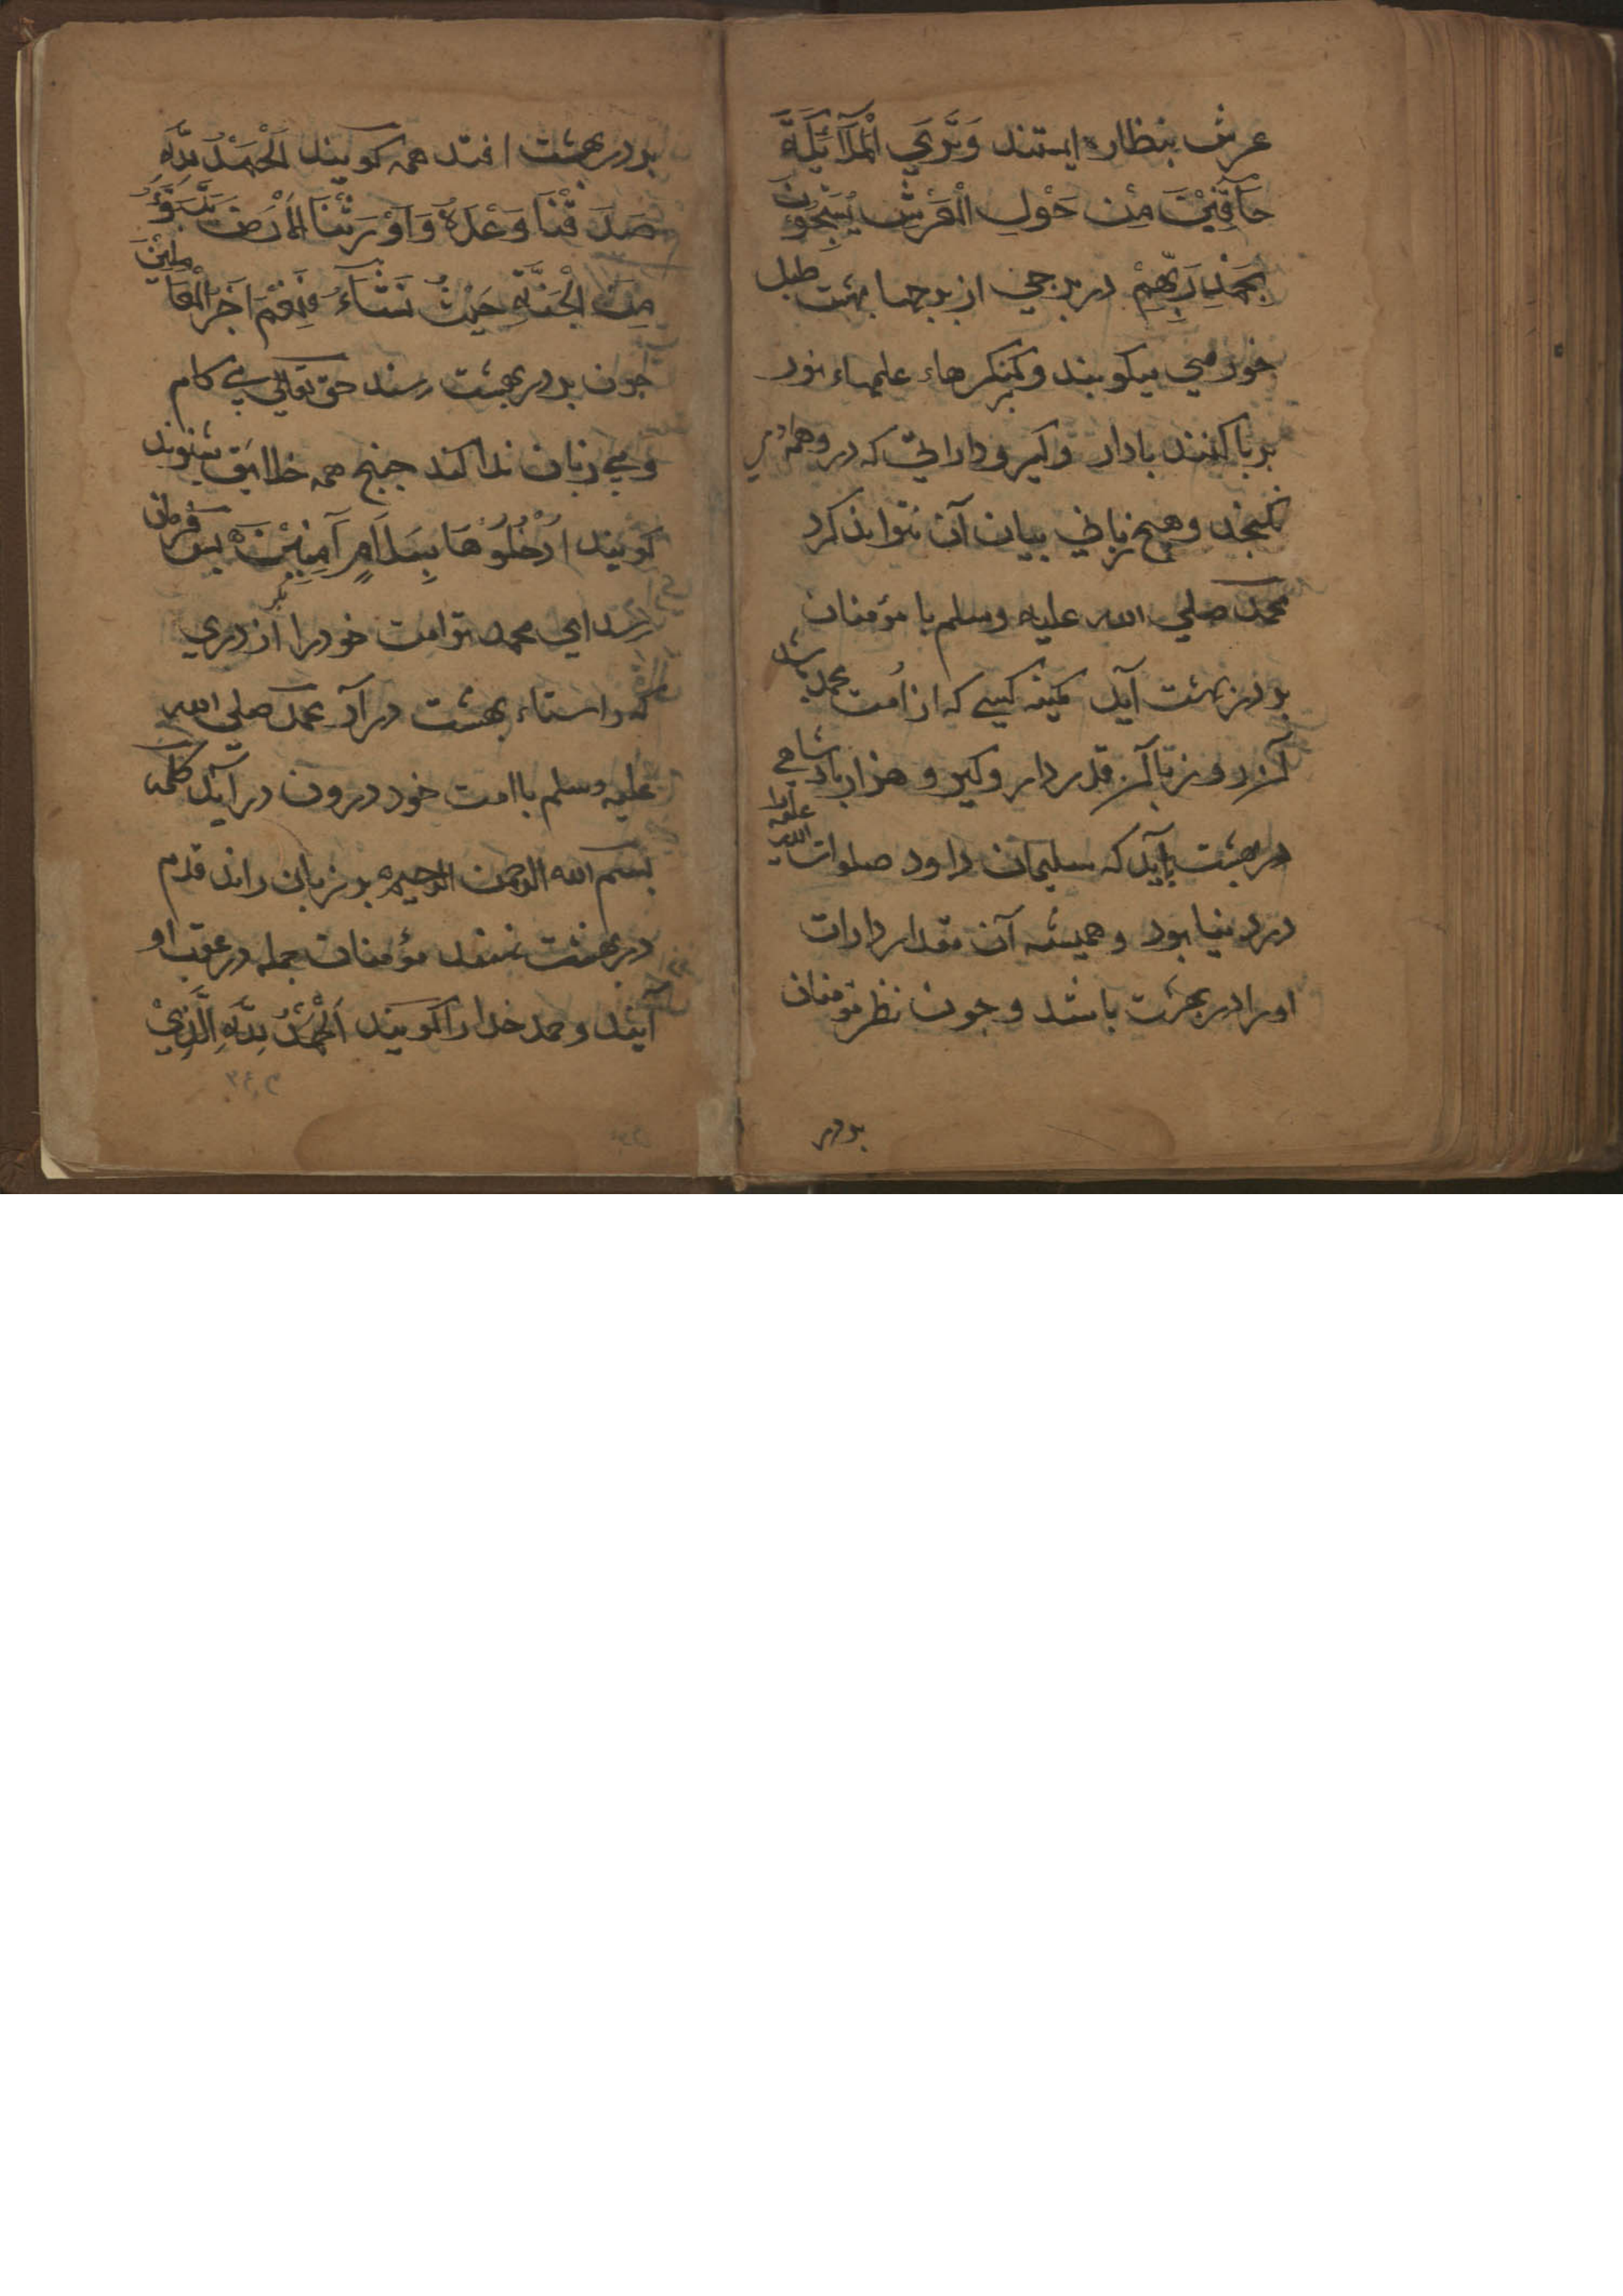 عرش بنظاره ایستند وَتَرَي الْمَلَآئِكَةَ
حَآفِّيْنَ مِنْ حَوْلِ الْعَرْشِ يُسَبِّحُوْنَ
بِحَمْدِ رَبِّهِمْ در برجي از برجهاء بهشت طبل
خورمي میکوبند و کنکرهاء علمهاء نور
بر پا کنند با دار وکیر و داراتي که در وهم آدمي
نکنجد و هیچ زباني بیان آن نتواند کرد
محمد صلي الله علیه وسلم با مؤمنان
بر در بهشت آید کمینه کسي که از اُمت محمد باشد
آن روز با آن قدر دار وکیر و هزار بادشاهي
در بهشت بآید که سلیمان داود صلوات الله علیه را
در دنیا بود و همیشه آن مقدار دارات
او را در بهشت باشد و چون نظر مؤمنان
بر در
بر در بهشت افتد همه کویند اَلْحَمْدُ لِلّٰهِ
صَدَقْنَا وَعْدَهٗ وَاَوْرَثَنَا الْاَرْضَ نَتَبَوَّءُ
مِنَ الْجَنَّةِ حَيْثُ نَشَآءُ فَنِعْمَ اَجْرُ الْعَامِلِيْنَ
چون بر در بهشت رسند حق تعالي بي کام
و بي زبان ندا کند چنچ همه خلایق بشنوند
کویند اُدْخُلُوْهَا بِسَلَامٍ آمِنِيْنَ پس فرمان
رسد اي محمد تو امت خود را از دري
که راستاء بهشت در آر محمد صلي الله
علیه وسلم با امت خود درون در آید کلمه
بسم الله الرحمن الرحیم بر زبان راند قدم
در بهشت نهند مؤمنان جمله در عقب او
آیند و حمد خدا را کویند اَلْحَمْدُ لِلّٰهِ الَّذِيْ